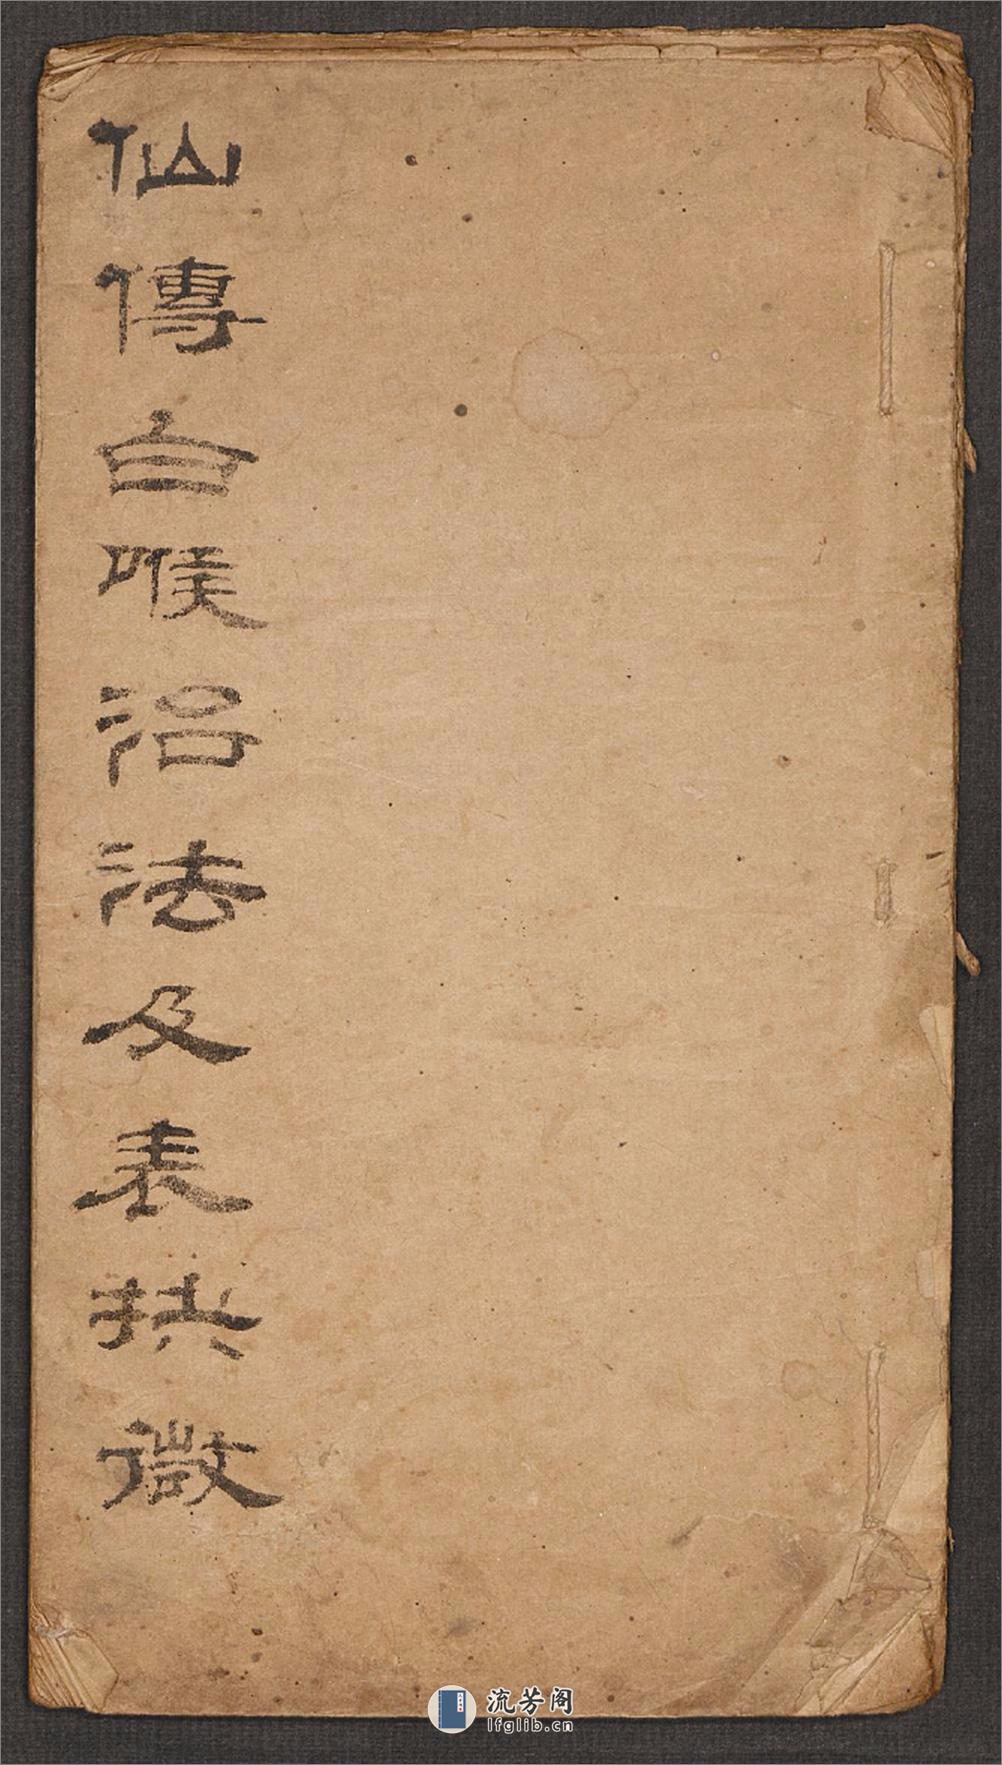 仙傳白喉治法及表抉微
流芳阁
lfglib.cn